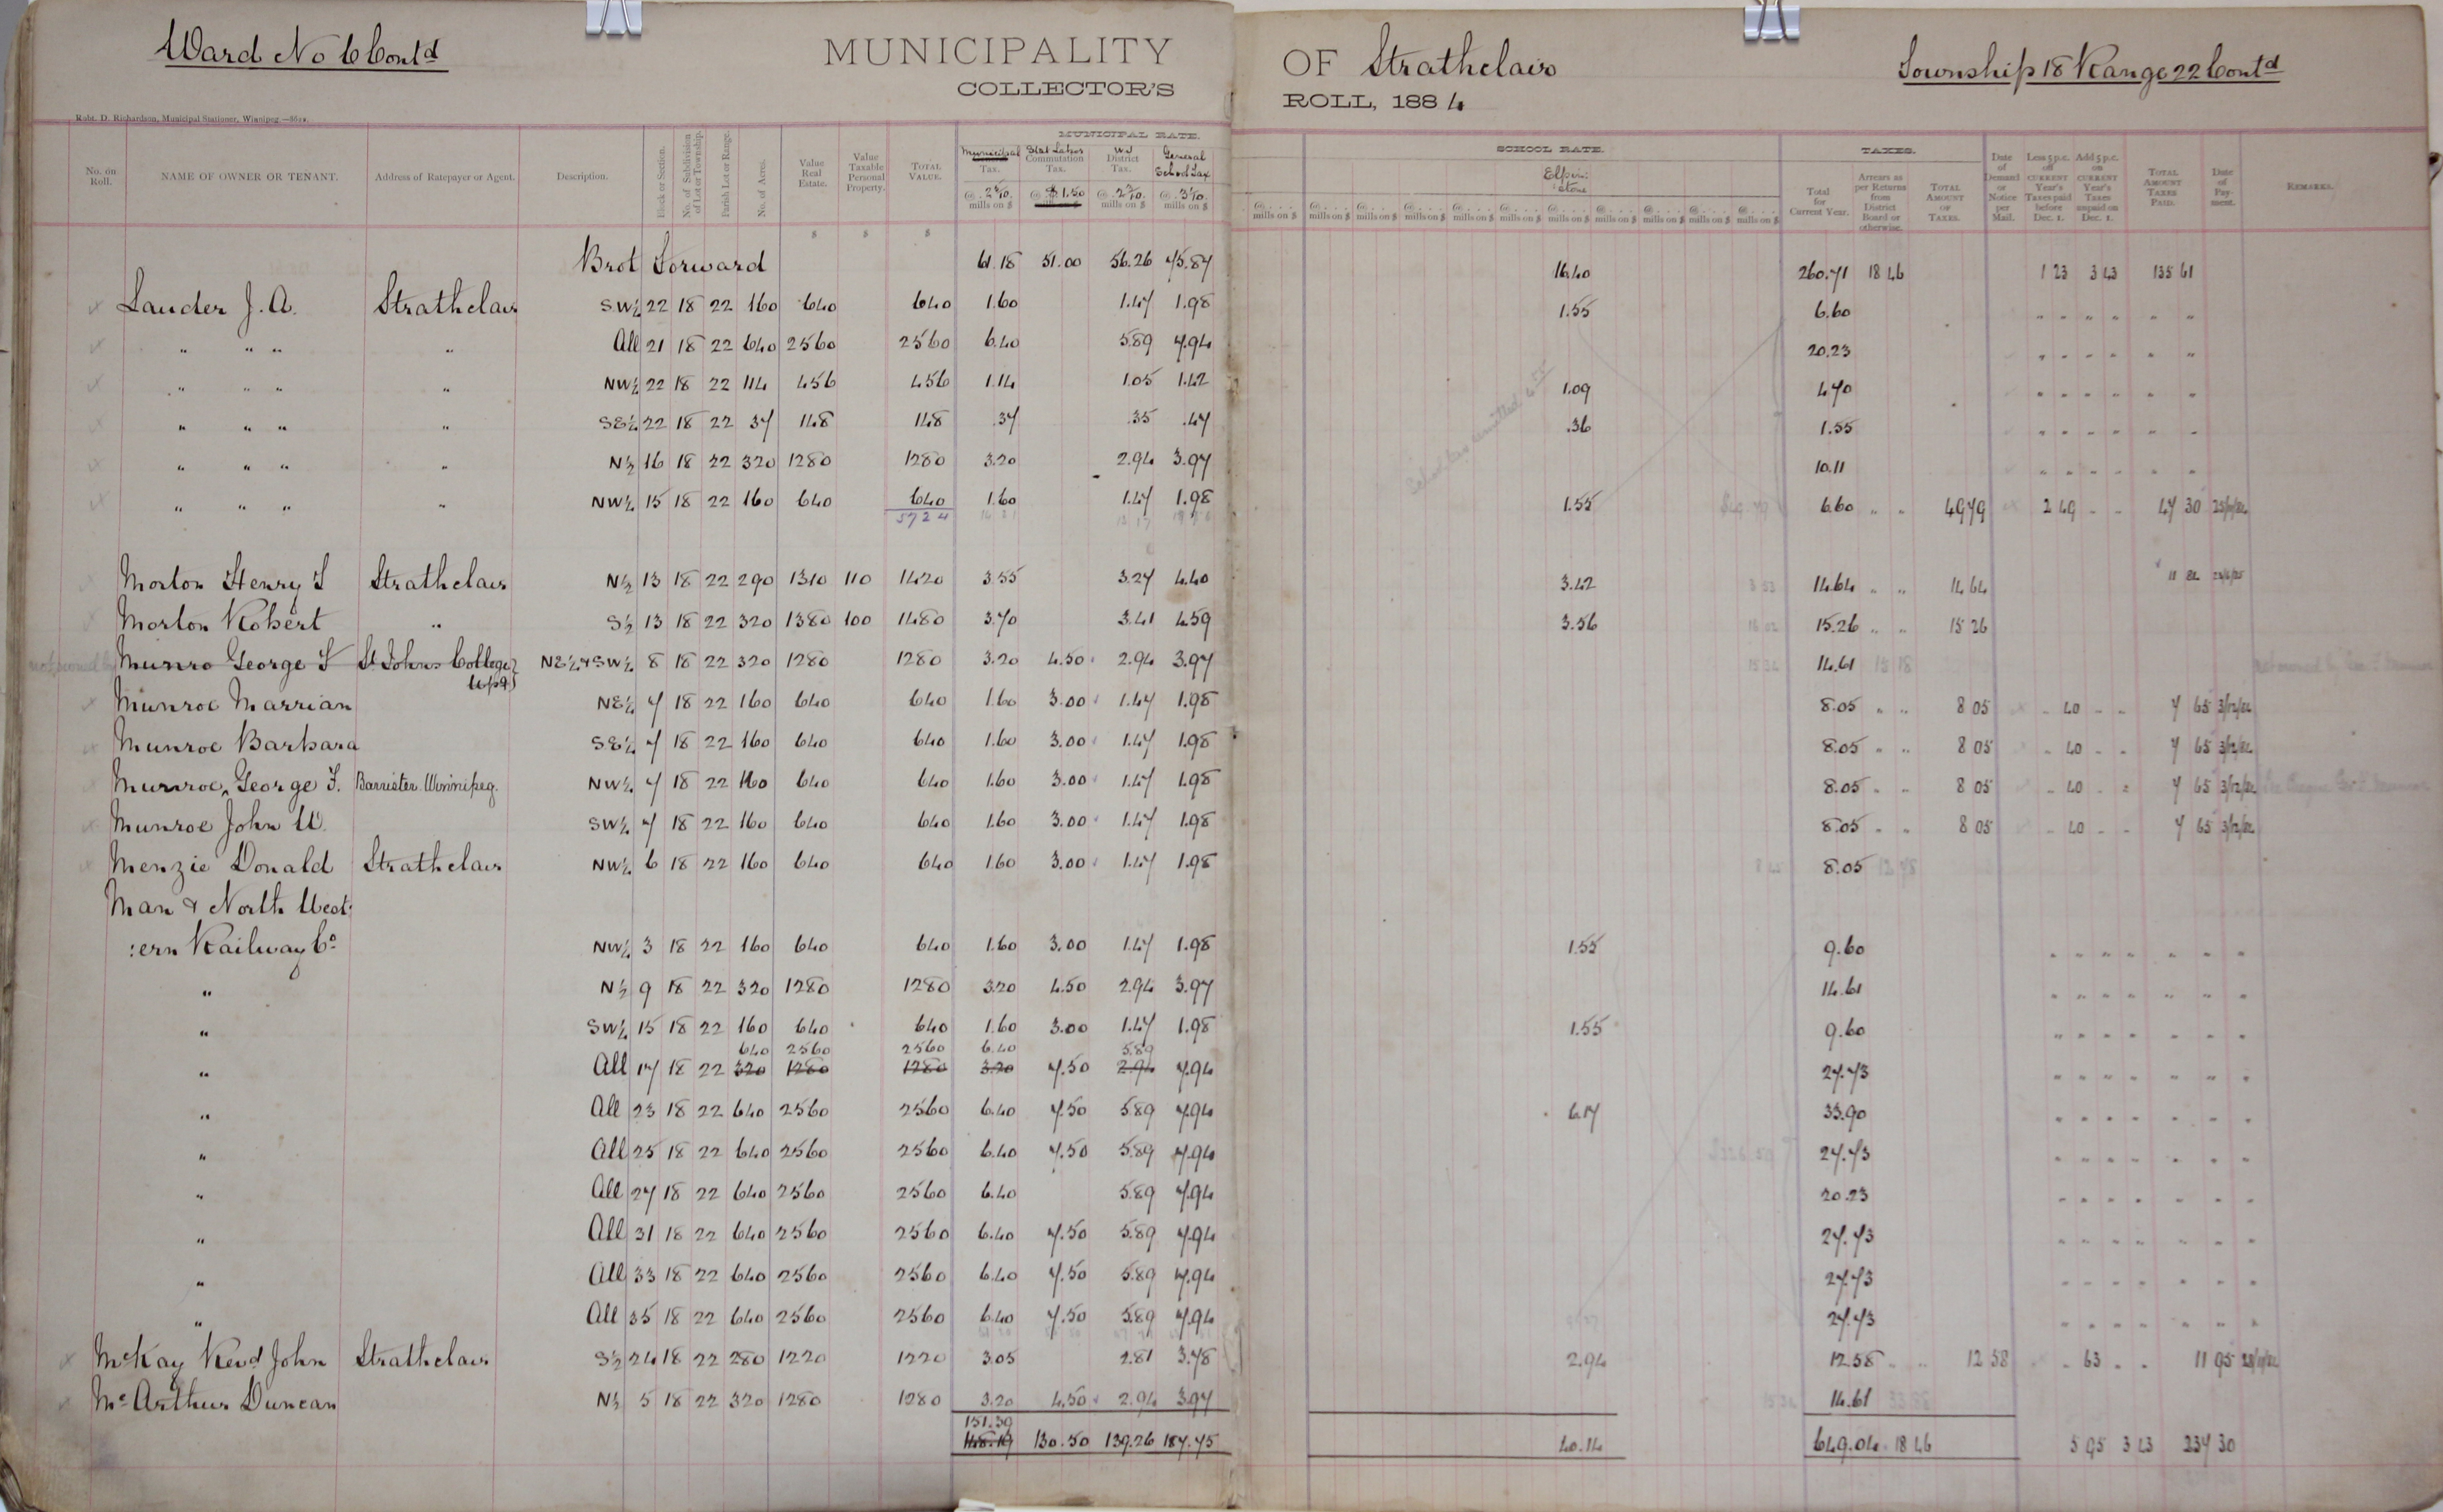 Ward No 6 Cont'd MUNICIPALITY OF Strathclair Township 18 Range 22 Cont'd
COLLECTOR'S ROLL, 1884
Robt. D. Richardson, Municipal Stationer, Winnipeg.
MUNICIPAL RATE. SCHOOL RATE. TAXES.
No. on Roll. NAME OF OWNER OR TENANT. Address of Ratepayer or Agent. Description. Block or Section. No. of Subdivision of Lot or Township. Parish Lot or Range. No. of Acres. Value Real Estate. Value Taxable Personal Property. TOTAL VALUE. Municipal Tax. Stat Labor Commutation Tax. W J District Tax. General School Tax Elphinstone Total for Current Year. Arrears as per Returns from District Board or otherwise. TOTAL AMOUNT OF TAXES. Date of Demand or Notice per Mail. Less 5 p.c. off CURRENT Year's Taxes paid before Dec. 1. Add 5 p.c. on CURRENT Year's Taxes unpaid on Dec. 1. TOTAL AMOUNT TAXES PAID. Date of Payment. REMARKS.
@ 2 5/10 mills on $ @ $1.50 @ 2 3/10 mills on $ @ 3 1/10 mills on $
Brot Forward 61.18 51.00 56.26 75.87 16.40 260.71 18 46 1 23 3 43 135 61
Lauder J. A. Strathclair SW¼ 22 18 22 160 640 640 1.60 1.47 1.98 1.55 6.60
" " " " All 21 18 22 640 2560 2560 6.40 5.89 7.94 20.23
" " " " NW¼ 22 18 22 114 456 456 1.14 1.05 1.42 1.09 4.70
" " " " SE¼ 22 18 22 37 148 148 .37 .35 .47 .36 1.55
" " " " N½ 16 18 22 320 1280 1280 3.20 2.94 3.97 10.11
" " " " NW¼ 15 18 22 160 640 640 1.60 1.47 1.98 1.55 6.60 " " 49 79 2 49 - - 47 30
5724
Morton Henry T Strathclair N½ 13 18 22 290 1310 110 1420 3.55 3.27 4.40 3.42 14.64 " " 14 64
Morton Robert " S½ 13 18 22 320 1380 100 1480 3.70 3.41 4.59 3.56 15.26 " " 15 26
Munro George F St Johns College NE¼ & SW¼ 8 18 22 320 1280 1280 3.20 4.50 2.94 3.97 14.61
Wpg
Munroe Marrian NE¼ 7 18 22 160 640 640 1.60 3.00 1.47 1.98 8.05 " " 8 05 - 40 - - 7 65 3/12/84
Munroe Barbara SE¼ 7 18 22 160 640 640 1.60 3.00 1.47 1.98 8.05 " " 8 05 - 40 - - 7 65 3/12/84
Munroe, George F. Barrister Winnipeg. NW¼ 7 18 22 160 640 640 1.60 3.00 1.47 1.98 8.05 " " 8 05 - 40 - - 7 65 3/12/84
Munroe John W. SW¼ 7 18 22 160 640 640 1.60 3.00 1.47 1.98 8.05 " " 8 05 - 40 - - 7 65 3/12/84
Menzie Donald Strathclair NW¼ 6 18 22 160 640 640 1.60 3.00 1.47 1.98 8.05
Man & North West
:ern Railway Co NW¼ 3 18 22 160 640 640 1.60 3.00 1.47 1.98 1.55 9.60
" N½ 9 18 22 320 1280 1280 3.20 4.50 2.94 3.97 14.61
" SW¼ 15 18 22 160 640 640 1.60 3.00 1.47 1.98 1.55 9.60
640 2560 2560 6.40 5.89
" All 17 18 22 320 1280 1280 3.20 7.50 2.94 7.94 27.73
" All 23 18 22 640 2560 2560 6.40 7.50 5.89 7.94 6.17 33.90
" All 25 18 22 640 2560 2560 6.40 7.50 5.89 7.94 27.73
" All 27 18 22 640 2560 2560 6.40 5.89 7.94 20.23
" All 31 18 22 640 2560 2560 6.40 7.50 5.89 7.94 27.73
" All 33 18 22 640 2560 2560 6.40 7.50 5.89 7.94 27.73
" All 35 18 22 640 2560 2560 6.40 7.50 5.89 7.94 27.73
McKay Revd John Strathclair S½ 24 18 22 280 1220 1220 3.05 2.81 3.78 2.94 12.58 " " 12 58 - 63 - - 11 95
McArthur Duncan N½ 5 18 22 320 1280 1280 3.20 4.50 2.94 3.97 14.61
151.39
148.19 130.50 139.26 187.75 40.14 649.04 18 46 5 95 3 43 234 30